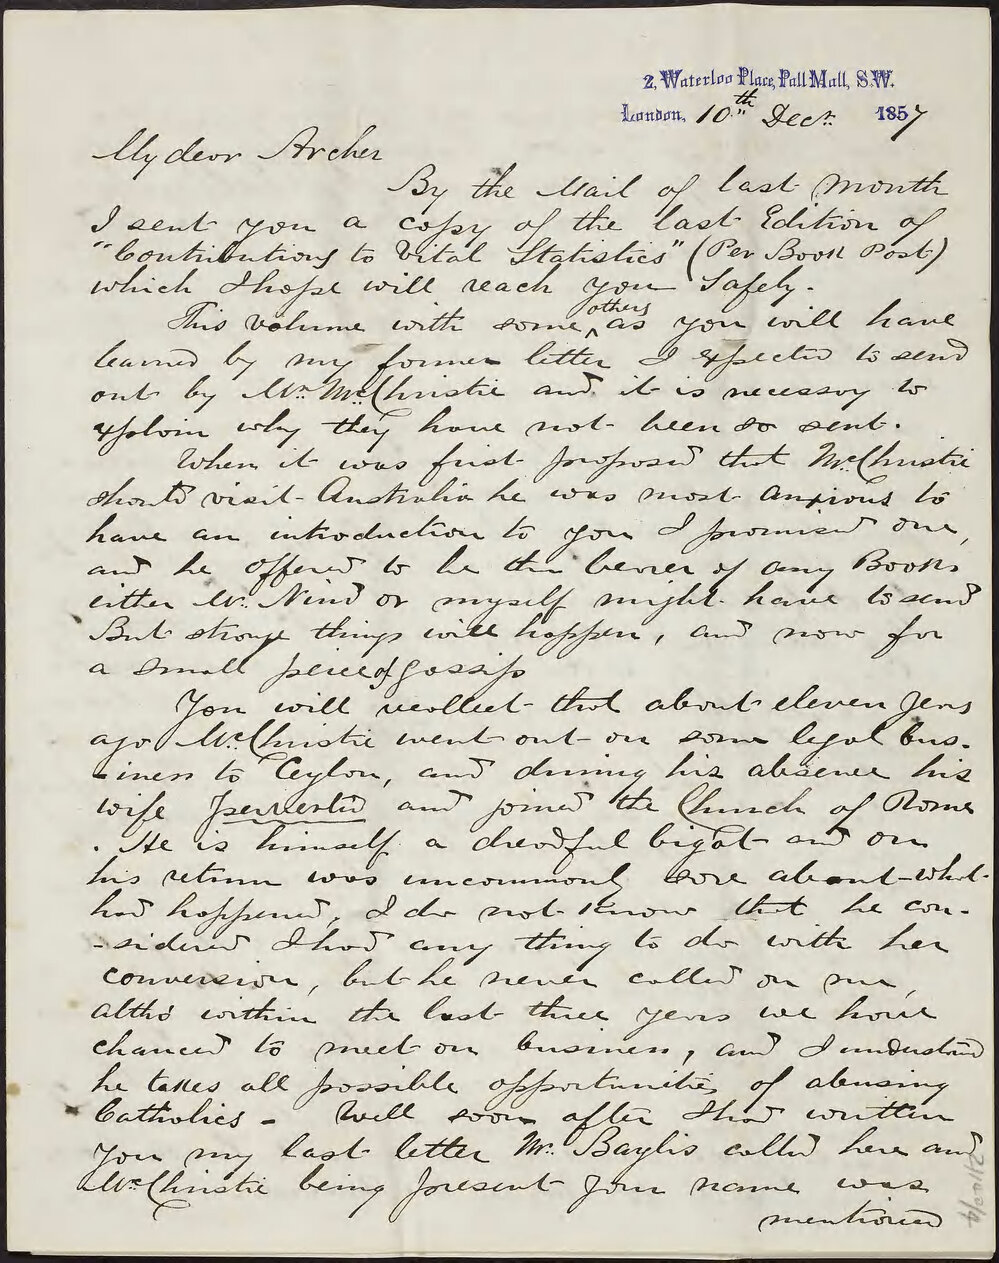 2, Waterloo Place, Pall Mall, S.W.
London, 10th Decr. 1857
My dear Archer
By the Mail of last month
I sent you a copy of the last Edition of
"Contributions to Vital Statistics" (Per Book Post)
which I hope will reach you safely.
This volume with some others as you will have
learned by my former letter I expected to send
out by Mr. McChristie and it is necessary to
explain why they have not been so sent.
When it was first proposed that McChristie
should visit Australia he was most anxious to
have an introduction to you I promised one,
and he offered to be the bearer of any Books
either Mr. Nind or myself might have to send
But strange things will happen, and now for
a small peice of gossip
You will recollect that about eleven years
ago McChristie went out on some legal bus-
-iness to Ceylon, and during his absence his
wife perverted and joined the Church of Rome
. He is himself a dreadful bigot and on
his return was uncommonly sore about what
had happened, I do not know that he con-
-sidered I had any thing to do with her
conversion, but he never called on me,
altho' within the last three years we have
chanced to meet on business, and I understand
he takes all possible opportunities of abusing
Catholics - Well soon after I had written
you my last letter Mr. Baylis called here and
McChristie being present your name was
mentioned